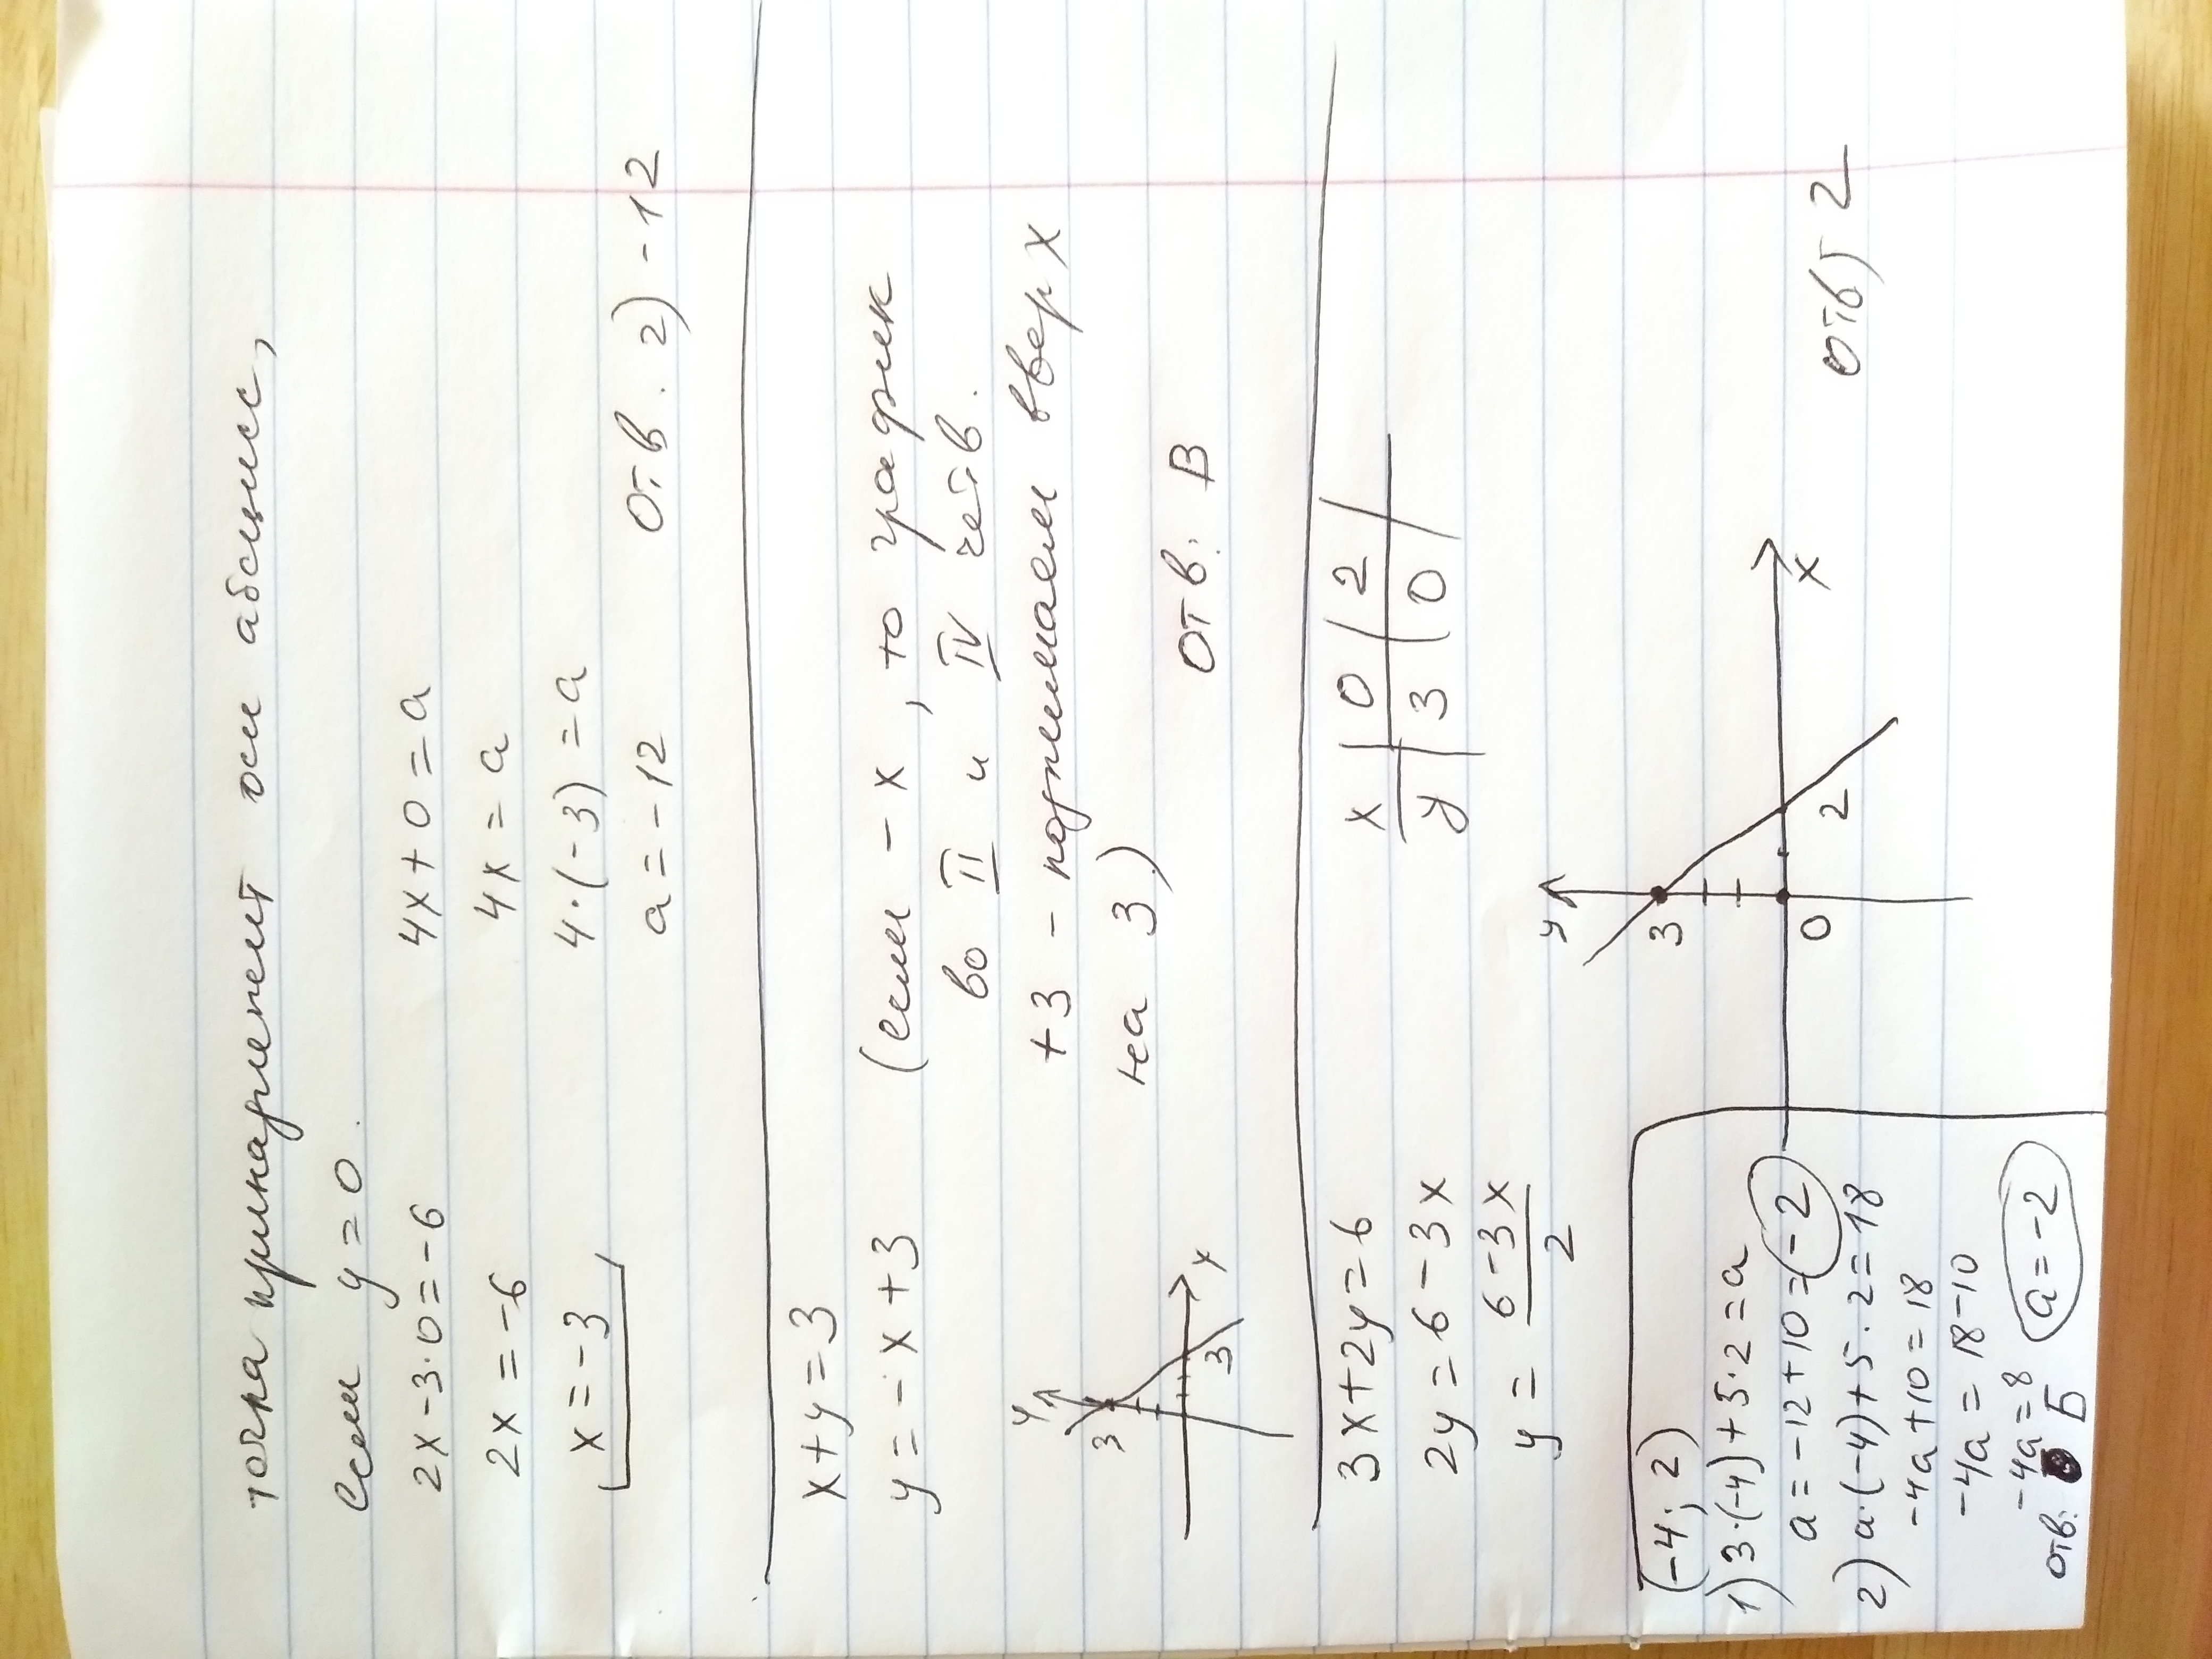 точка принадлежит оси абсцисс,
если y = 0.
2x - 3·0 = -6    4x + 0 = a
2x = -6    4x = a
x = -3    4·(-3) = a
a = -12    Отв. 2) -12
x + y = 3
y = -x + 3    (если -x, то график
во II и IV четв.
+3 - поднимаем вверх
на 3)
y
3
3
x
Отв: В
3x + 2y = 6    x | 0 | 2 |
2y = 6 - 3x    y | 3 | 0 |
y = 6 - 3x / 2
y
3
0
2
x
Отв) 2
(-4; 2)
1) 3·(-4) + 5·2 = a
a = -12 + 10 = -2
2) a·(-4) + 5·2 = 18
-4a + 10 = 18
-4a = 18 - 10
-4a = 8    a = -2
отв: Б